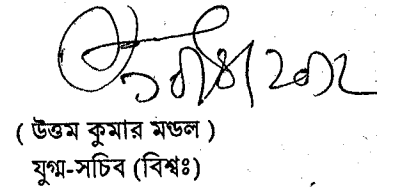 ( উত্তম কুমার মণ্ডল )
যুগ্ম-সচিব (বিশ্বঃ)